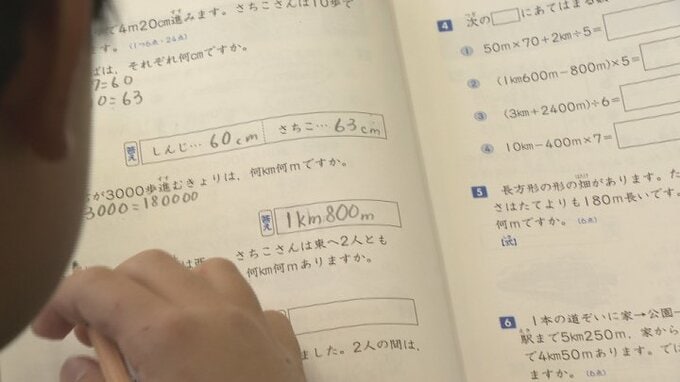 で4m20cm進みます。さちこさんは10歩で
ます。(1つ6点・24点)
ばは、それぞれ何cmですか。
7=60
10=63
答え しんじ… 60cm さちこ… 63cm
が3000歩進むきょりは、何km何mですか。
3000=180000
答え 1km800m
さちこさんは東へ2人とも
何km何mありますか。
ました。2人の間は、
4 次の□にあてはまる
① 50m×70+2km÷5=
② (1km600m-800m)×5=
③ (3km+2400m)÷6=
④ 10km-400m×7=
5 長方形の形の畑があります。た
さはたてよりも180m長いです。
何mですか。(6点)
[式]
6 1本の道ぞいに家→公園→
駅まで5km250m、家から
で4km50mあります。では
ますか。(6点)